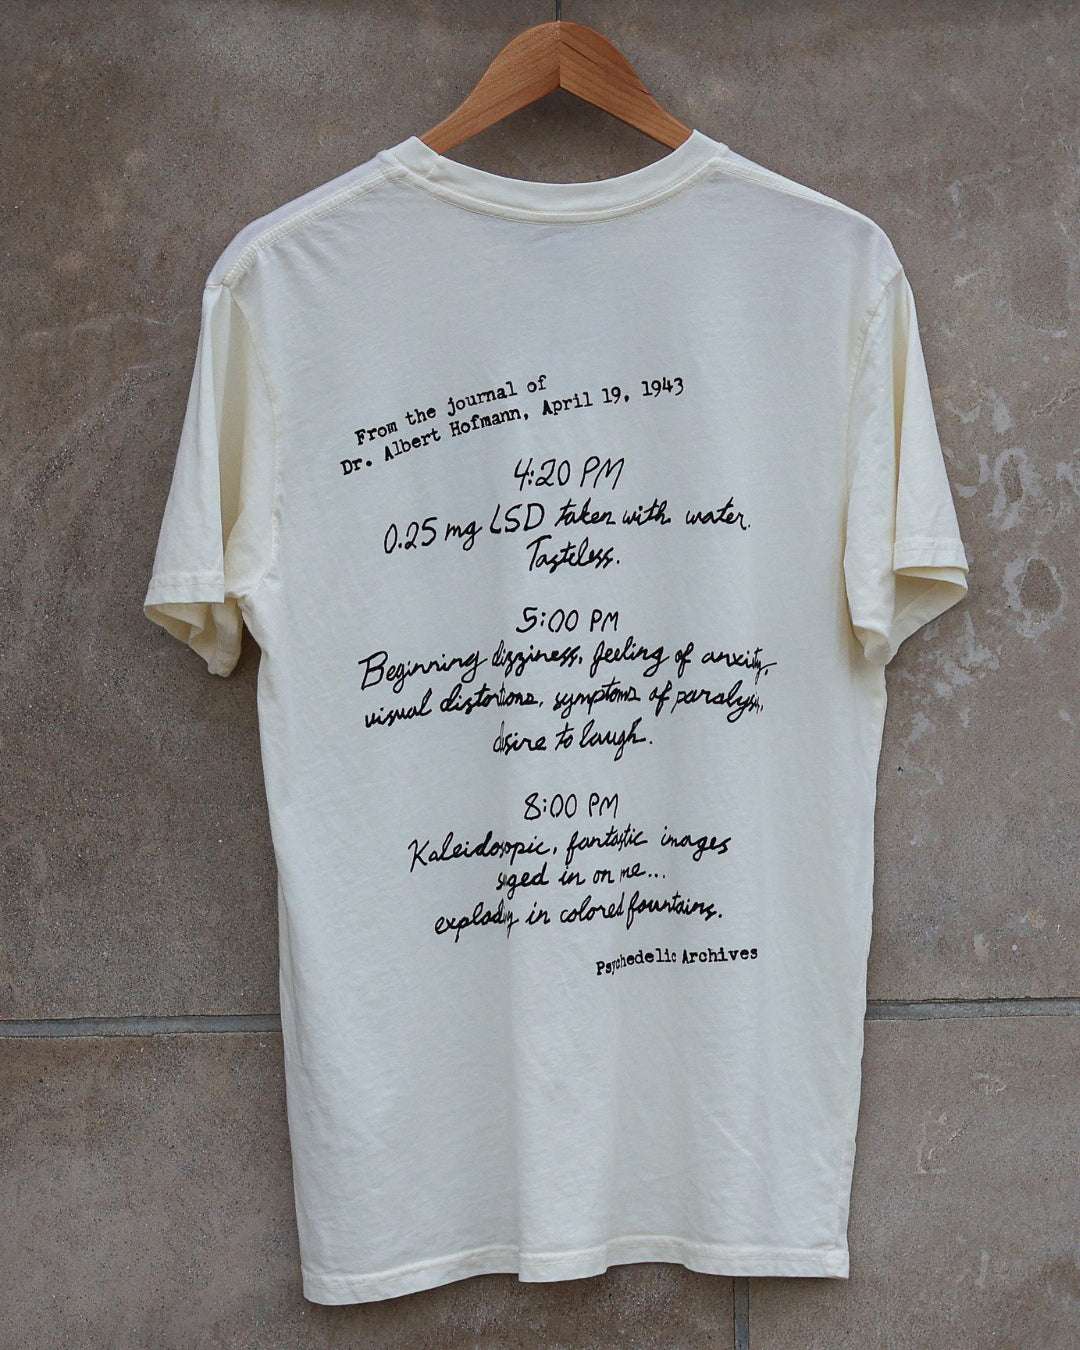 From the journal of
Dr. Albert Hofmann, April 19, 1943
4:20 PM
0.25 mg LSD taken with water.
Tasteless.
5:00 PM
Beginning dizziness, feeling of anxiety,
visual distortions, symptoms of paralysis,
desire to laugh.
8:00 PM
Kaleidoscopic, fantastic images
surged in on me...
exploding in colored fountains.
Psychedelic Archives